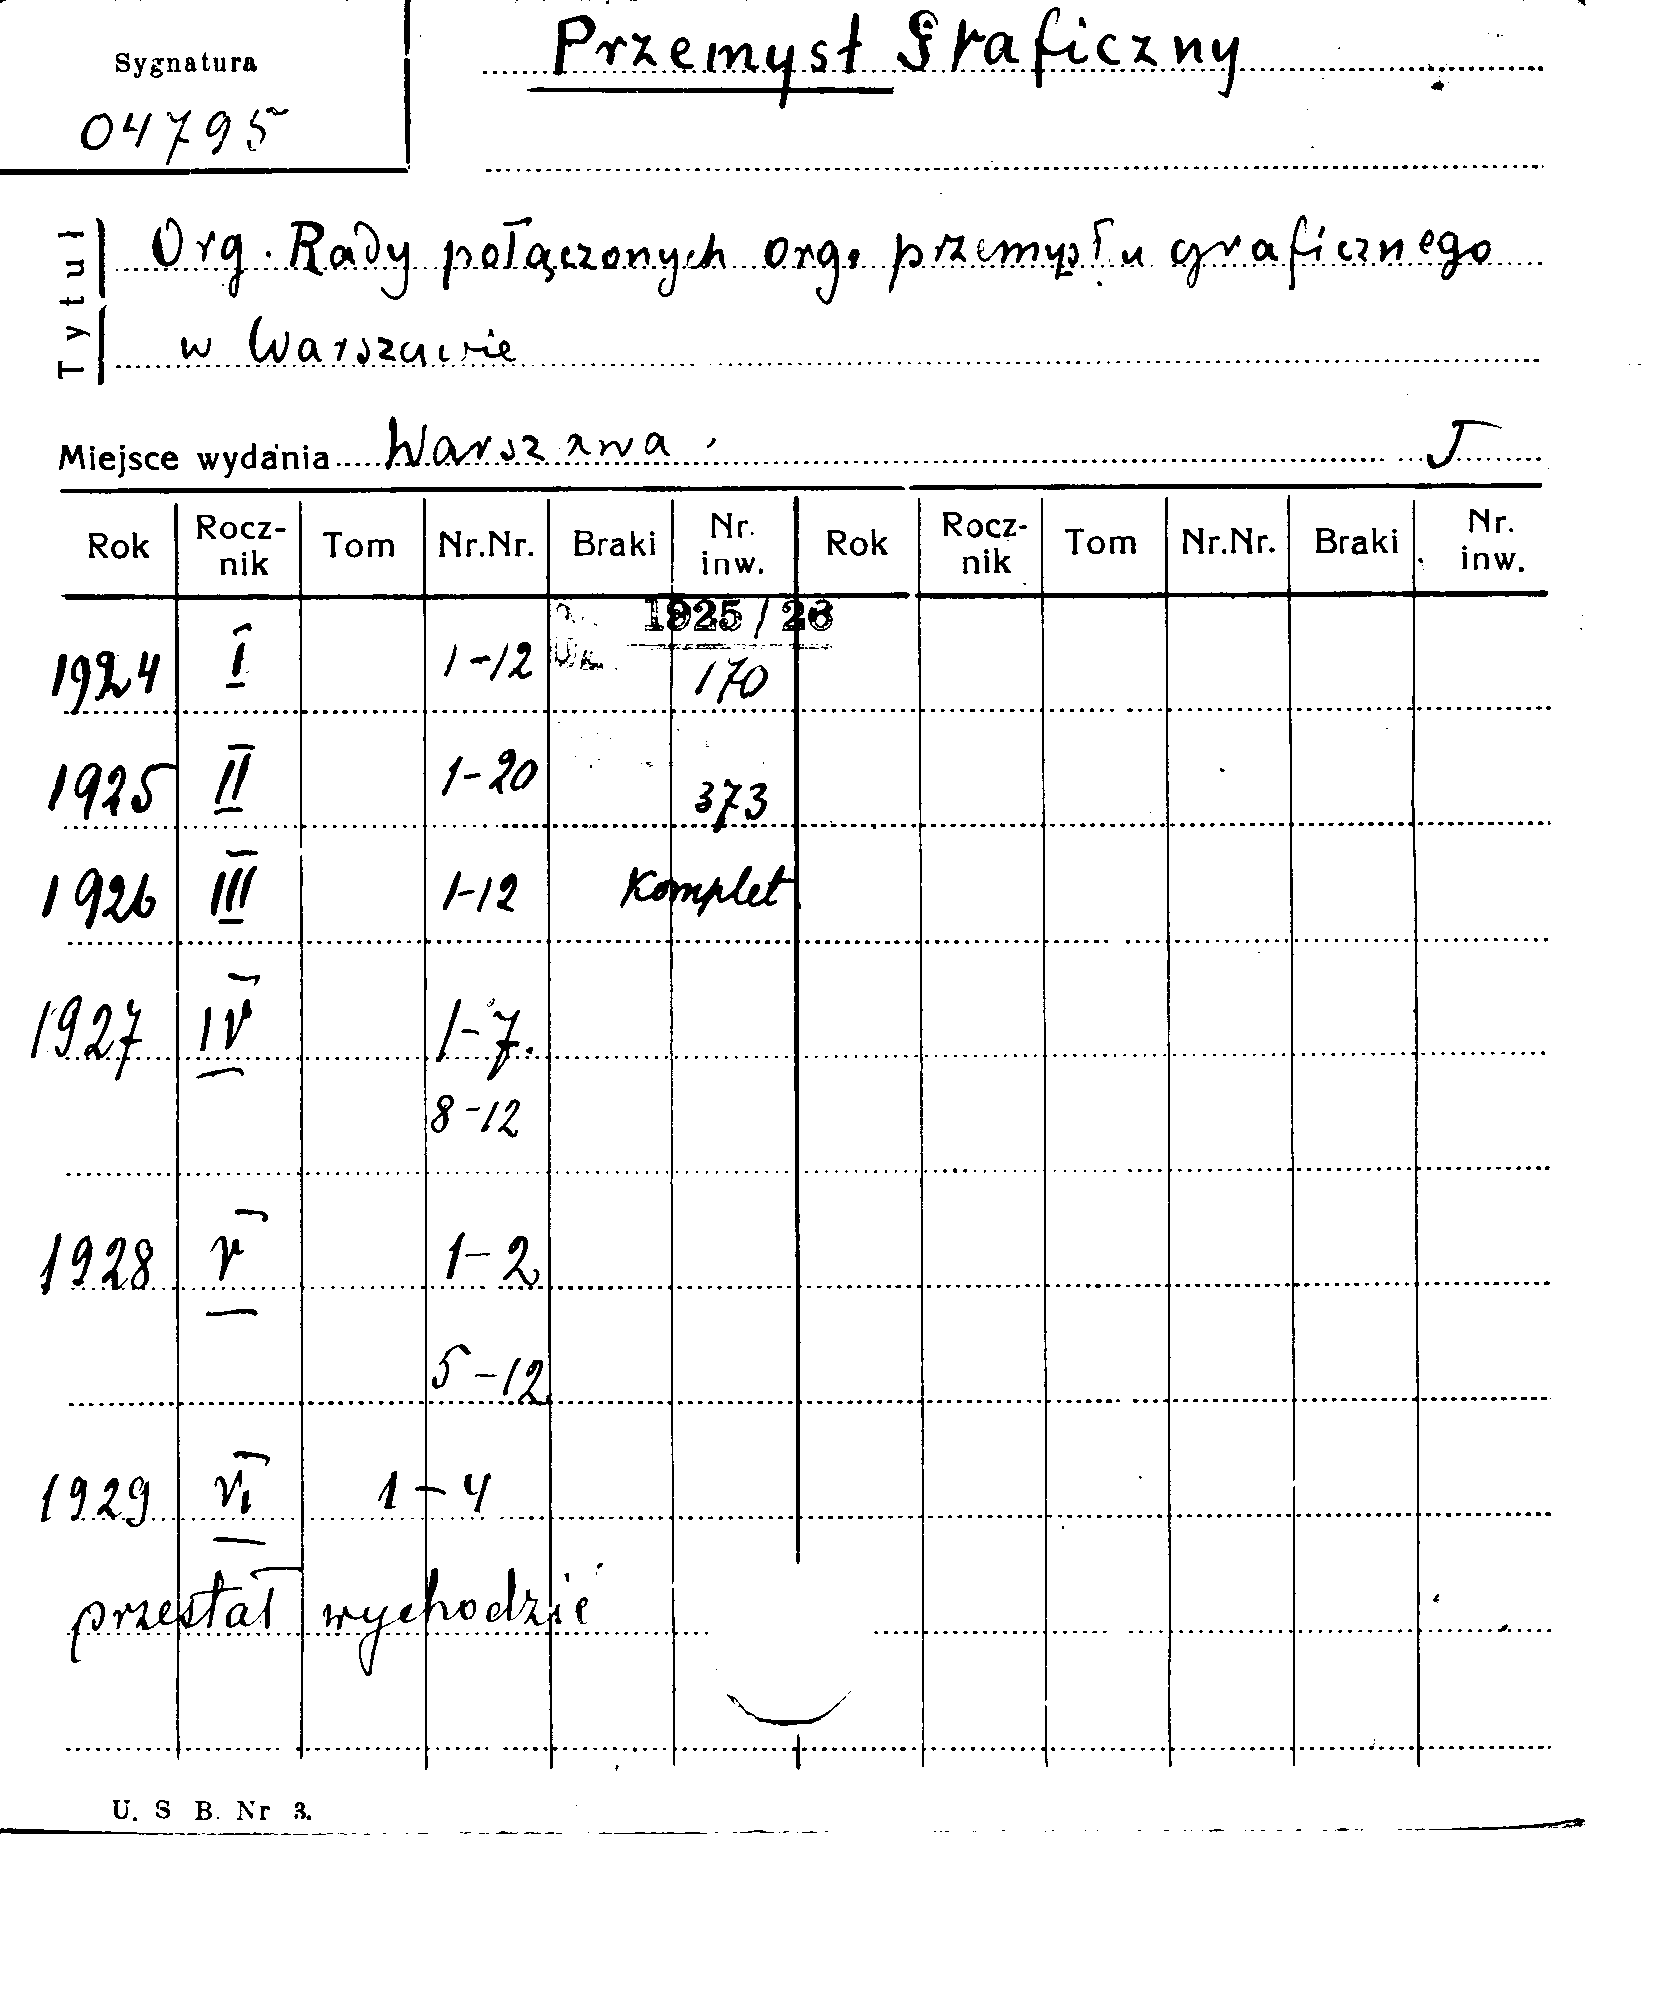 Sygnatura
04795
Przemysł Graficzny
Tytuł
Org. Rady połączonych org. przemysłu graficznego
w Warszawie
Miejsce wydania Warszawa J
Rok Rocz-nik Tom Nr.Nr. Braki Nr. inw. Rok Rocz-nik Tom Nr.Nr. Braki Nr. inw.
1925/26
1924 I 1-12 170
1925 II 1-20 373
1926 III 1-12 Komplet
1927 IV 1-7.
8-12
1928 V 1-2
5-12
1929 VI 1-4
przestał wychodzić
U. S B. Nr 3.